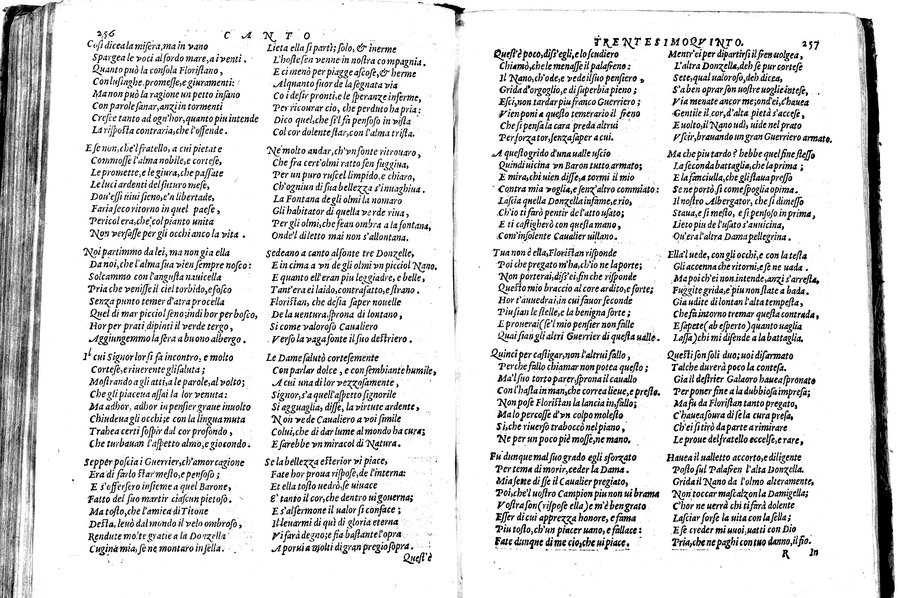 256
CANTO
Così dicea la misera, ma in vano
Spargea le voci al sordo mare, a i venti.
Quanto può la consola Floristano,
Con lusinghe, promesse, e giuramenti:
Ma non può la ragion un petto insano
Con parole sanar, anzi in tormenti
Cresce tanto ad ogn'hor, quanto piu intende
La risposta contraria, che l'offende.
E se non, che'l fratello, a cui pietate
Commosse l'alma nobile, e cortese,
Le promette, e le giura, che passate
Le luci ardenti del futuro mese,
Dou'essi mui sieno, e'n libertade,
Faria seco ritorno in quel paese,
Pericol era, che' col pianto unita
Non versasse per gli occhi anco la vita.
Noi partimmo da lei, ma non gia ella
Da noi, che l'alma sua vien sempre nosco:
Solcammo con l'angusta nauicella
Pria che venisse il ciel torbido, e fosco
Senza punto temer d'atra procella
Quel di mar picciol seno; indi hor per bosco,
Hor per prati dipinti il verde tergo,
Aggiungemmo la sera a buono albergo.
Il cui Signor lor si fa incontro, e molto
Cortese, e riuerente gli saluta;
Mostrando a gli atti, a le parole, al volto;
Che gli piacena assai la lor venuta:
Ma adhor, adhor in pensier graue inuolto
Chiudeua gli occhi; e con la lingua muta
Trahea certi sospir dal cor profondo,
Che turbauan l'aspetto almo, e giocondo.
Sepper poscia i Guerrier, ch'amor cagione
Era di farlo star mesto, e pensoso;
E s'offersero insieme a quel Barone,
Fatto del suo martir ciascun pietoso.
Ma tosto, che l'amica di Titone
Desta, leuò dal mondo il velo ombroso,
Rendute molte gratie a la Donzella
Cugina mia, se ne montaro in sella.
Lieta ella si partì; solo, & inerme
L'hoste sen venne in nostra compagnia.
E ci menò per piagge ascose, & herme
Alquanto fuor de la segnata via
Co i desir pronti, e le speranze inferme,
Per ricourar cio, che perduto ha pria:
Dico quel, che s'il fa pensoso in vista
Col cor dolente star, con l'alma trista.
Ne molto andar, ch'vn fonte ritrouaro,
Che fra cert'olmi ratto sen fuggiua,
Per un puro ruscel limpido, e chiaro,
Ch'ogniun di sua bellezza s'inuaghiua.
La Fontana de gli olmi la nomaro
Gli habitator di quella verde riua,
Per gli olmi, che fean ombra a la fontana,
Onde'l diletto mai non s'allontana.
Sedeano a canto al fonte tre Donzelle,
E in cima a vn de gli olmi vn picciol Nano.
E quanto ell'eran piu leggiadre, e belle,
Tant'era ei laido, contrafatto, e strano.
Floristan, che desia saper nouelle
De la uentura, sprona di lontano,
Si come valoroso Caualiero
Verso la vaga fonte il suo destriero.
Le Dame saluto cortesemente
Con parlar dolce, e con sembiante humile,
A cui una di lor vezzosamente,
Signor, s'a quell'aspetto signorile
Si agguaglia, disse, la virtute ardente,
Non vede Caualiero a voi simile
Colui, che di dar lume al mondo ha cura;
E sarebbe vn miracol di Natura.
Se la bellezza esterior vi piace,
Fate hor proua rispose, de l'interna:
Et ella tosto uedrò, se uiuace
E' tanto il cor, che dentro ui gouerna;
E s'al sermone il ualor si conface;
Il leuarmi di quà di gloria eterna
Vi sarà degno; e sia bastante l'opra
A porui a molti di gran pregio sopra.
Quest'è
TRENTESIMOQVINTO.
257
Quest'è poco, diss'egli, e lo scudiero
Chiamò, che le menasse il palafreno:
Il Nano, ch'ode, e vede il suo pensiero,
Grida d'orgoglio, e di superbia pieno;
Esci, non tardar piu franco Guerriero;
Vien poni a questo temerario il freno
Che si pensa la cara preda altrui
Per forza tor, senza saper a cui.
A questo grido d'una ualle uscio
Quindi uicina vn Baron tutto armato;
E mira, chi uien disse, a tormi il mio
Contra mia voglia, e senz'altro commiato:
Lascia quella Donzella infame, e rio,
Ch'io ti farò pentir de l'atto usato;
E ti castigherò con questa mano,
Com'insolente Caualier uillano.
Tua non è ella, Floristan risponde
Poi che pregato m'ha, ch'io ne la porte;
Non porterai, diss'ei, fin che risponde
Questo mio braccio al core ardito, e forte;
Hor t'auuedrai, in cui fauor seconde
Piu sian le stelle, e la benigna sorte;
E prouerai (se'l mio pensier non falle
Quai sian gli altri Guerrier di questa ualle.
Quinci per castigar, non l'altrui fallo,
Perche fallo chiamar non potea questo;
Ma'l suo torto parer, sprona il cauallo
Con l'hasta in man, che correa lieue, e presto.
Non pose Floristan la lancia in fallo;
Ma lo percosse d'vn colpo molesto
Sì, che riuerso traboccò nel piano,
Ne per un poco piè mosse, ne mano.
Fu dunque mal suo grado egli sforzato
Per tema di morir, ceder la Dama.
Mia sete disse il Caualier pregiato,
Poi, che'l uostro Campion piu non ui brama
Vostra son (rispose ella) e m'è ben grato
Esser di cui apprezza honore, e fama
Piu tosto, ch'vn piacer uano, e fallace:
Fate dunque di me cio, che ui piace.
Mentr'ei per dipartirsi il fren uolgea,
L'altra Donzella, deh se pur cortese
Sete, qual ualoroso, deh dicea,
S'a ben oprar son uostre uoglie intese,
Via menate ancor me; ond'ei, c'hauea
Gentile il cor, d'alta pietà s'accese,
E uolto, il Nano udì, uide nel prato
Vscir, brauando un gran Guerriero armato.
Ma che piu tardo? hebbe quel fine stesso
La seconda battaglia, che la prima;
E la fanciulla, che gli staua presso
Se ne portò sì come spoglia opima.
Il nostro Albergator, che sì dimesso
Staua, e sì mesto, e sì pensoso in prima,
Lieto piu de l'usato s'auuicina,
Qu'era l'altra Dama pellegrina.
Ella l'uede, con gli occhi, e con la testa
Gli accenna che ritorni, e se ne uada.
Ma poi ch'ei non intende, anzi s'arresta,
Fuggite grida, e piu non state a bada.
Gia udite di lontan l'alta tempesta,
Che fa intorno tremar questa contrada,
E sapete (ab esperto) quanto uaglia
Lassa) chi mi difende a la battaglia.
Questi son soli duo; uoi disarmato
Tal che durerà poco la contesa.
Gia il destrier Galaoro hauea spronato
Per poner fine a la dubbiosa impresa;
Ma fu da Floristan tanto pregato,
C'hauea foura di se la cura presa,
Ch'ei si tirò da parte a rimirare
Le proue del fratello eccelse, e rare,
Hauea il ualletto accorto, e diligente
Posto sul Palafren l'alta Donzella.
Grida il Nano da l'olmo alteramente,
Non toccar mascalzon la Damigella;
C'hor ne uerrà chi ti farà dolente
Lasciar forse la uita con la sella;
E se creder mi uuoi, uatti con Dio
Pria, che ne paghi con tuo danno, il fio.
R
In